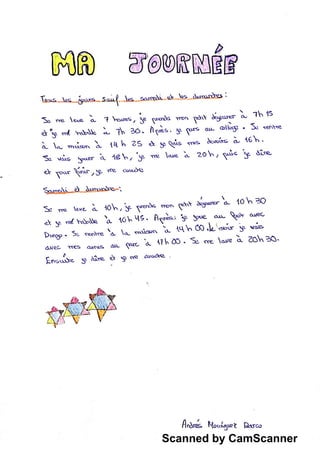 MA JOURNÉE
Tous les jours sauf les samedi et les dimanches:
Se me leve à 7 heures, je prends mon petit dejeuner à 7h 15
et je me habille à 7h 30. Après, je pars au collège. Se rentre
à la maison à 14 h 25 et je fais mes devoirs à 16 h.
Se vais jouer à 18h, je me lave à 20h, puis je dîne
et pour finir, je me couche
Samedi et dimanche:
Se me leve à 10h, je prends mon petit dejeuner à 10 h 30
et je me habille à 10h 45. Après je joue au foot avec
Diego. Se rentre à la maison à 14 h 00. Le soir je vais
avec mes amis au parc à 17h 00. Se me lave à 20h 30.
Ensuite je dîne et je me couche.
Andrés
Scanned by CamScanner